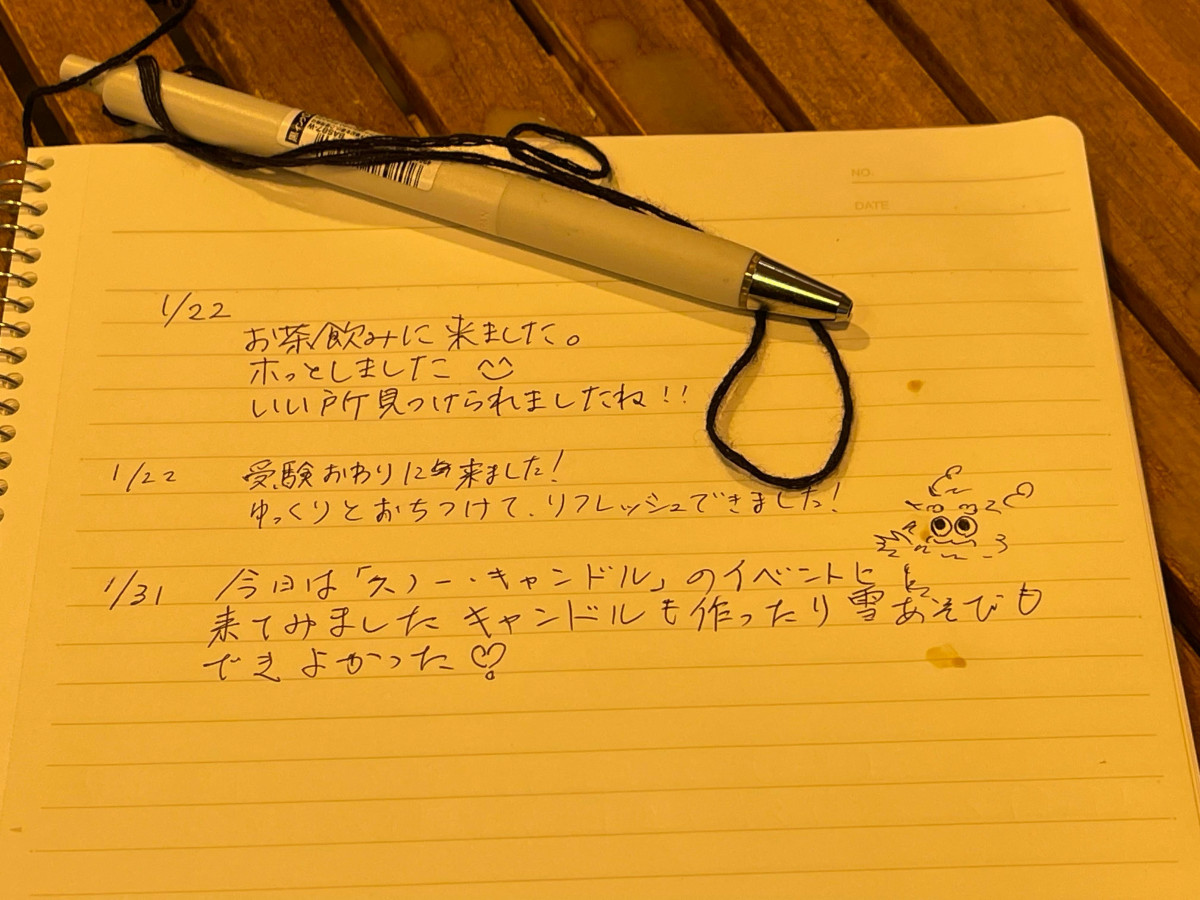 NO.
DATE
1/22
お茶飲みに来ました。
ホッとしました ^^
いい所見つけられましたね!!
1/22 受験おわりに来ました!
ゆっくりとおちつけて、リフレッシュできました!
1/31 今日は「スノー・キャンドル」のイベントに
来てみました キャンドルも作ったり雪あそびも
できよかった♡